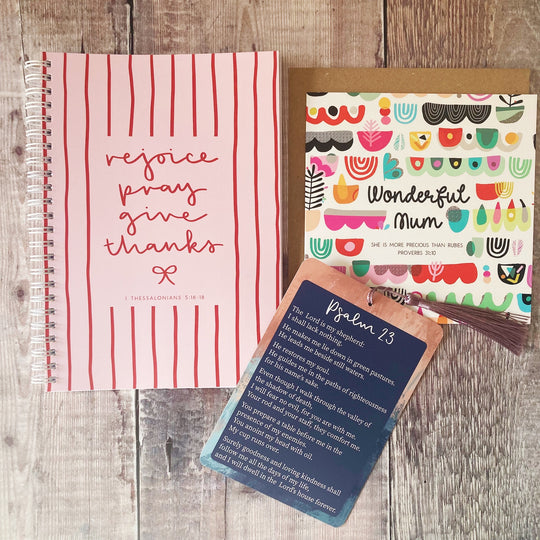 rejoice
pray
give
thanks
1 THESSALONIANS 5:16-18
Wonderful
Mum
SHE IS MORE PRECIOUS THAN RUBIES
PROVERBS 31:10
Psalm 23
The Lord is my shepherd:
I shall lack nothing.
He makes me lie down in green pastures.
He leads me beside still waters.
He restores my soul.
He guides me in the paths of righteousness
for his name's sake.
Even though I walk through the valley of
the shadow of death,
I will fear no evil, for you are with me.
Your rod and your staff, they comfort me.
You prepare a table before me in the
presence of my enemies.
You anoint my head with oil.
My cup runs over.
Surely goodness and loving kindness shall
follow me all the days of my life,
and I will dwell in the Lord's house forever.